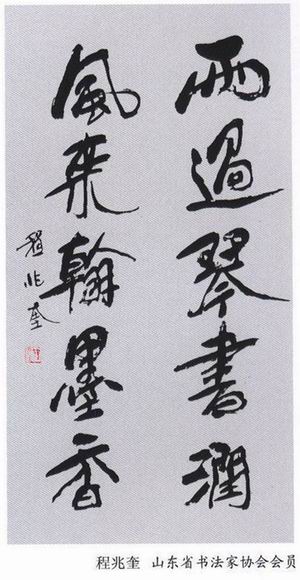 雨過琴書潤
風來翰墨香
程兆奎
程兆奎 山东省书法家协会会员